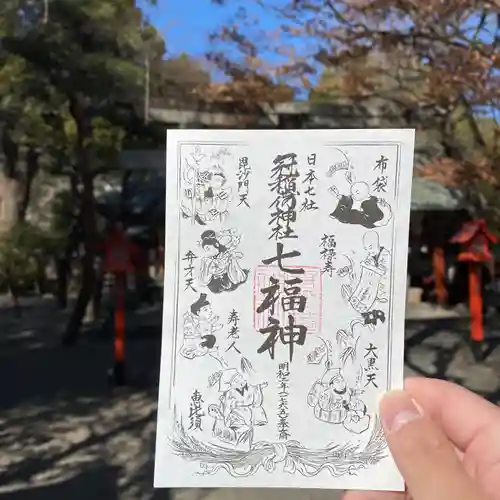 布袋
日本七社
冠稲荷神社
七福神
毘沙門天
福禄寿
弁才天
寿老人
大黒天
恵比須